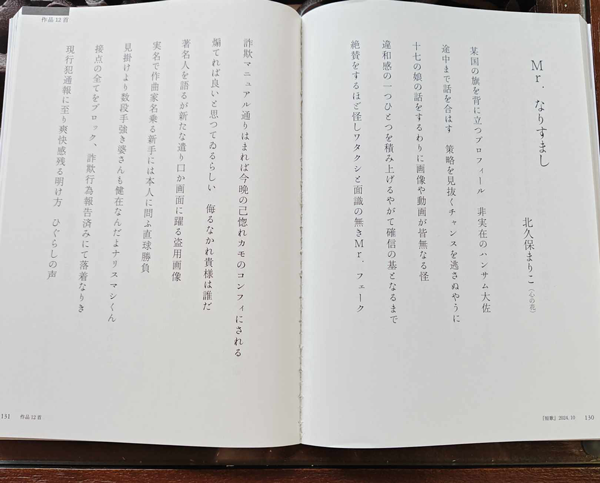 Mr. なりすまし
北久保まりこ（心の花）
某国の旗を背に立つプロフィール　非実在のハンサム大佐
途中まで話を合はす　策略を見抜くチャンスを逃さぬやうに
十七の娘の話をするわりに画像や動画が皆無なる怪
違和感の一つひとつを積み上げるやがて確信の基となるまで
絶賛をするほど怪しワタクシと面識の無きMr. フェーク
『短歌』2024.10　130
作品12首
詐欺マニュアル通りはまれば今晩の己惚れカモのコンフィにされる
煽てれば良いと思つてゐるらしい　侮るなかれ貴様は誰だ
著名人を語るが新たな遣り口か画面に躍る盗用画像
実名で作曲家名乗る新手には本人に問ふ直球勝負
見掛けより数段手強き婆さんも健在なんだよナリスマシくん
接点の全てをブロック、詐欺行為報告済みにて落着なりき
現行犯通報に至り爽快感残る明け方　ひぐらしの声
131　作品12首